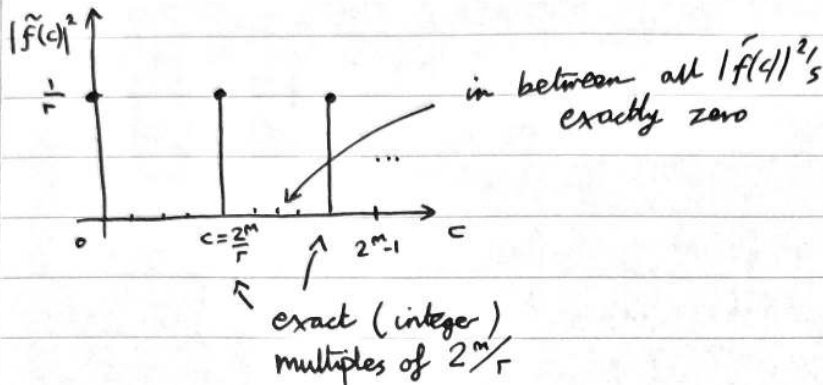 |f̃(c)|²
1/r
in between all |f̃(c)|²'s
exactly zero
...
0
c = 2^m/r
2^m-1
c
exact (integer)
multiples of 2^m/r